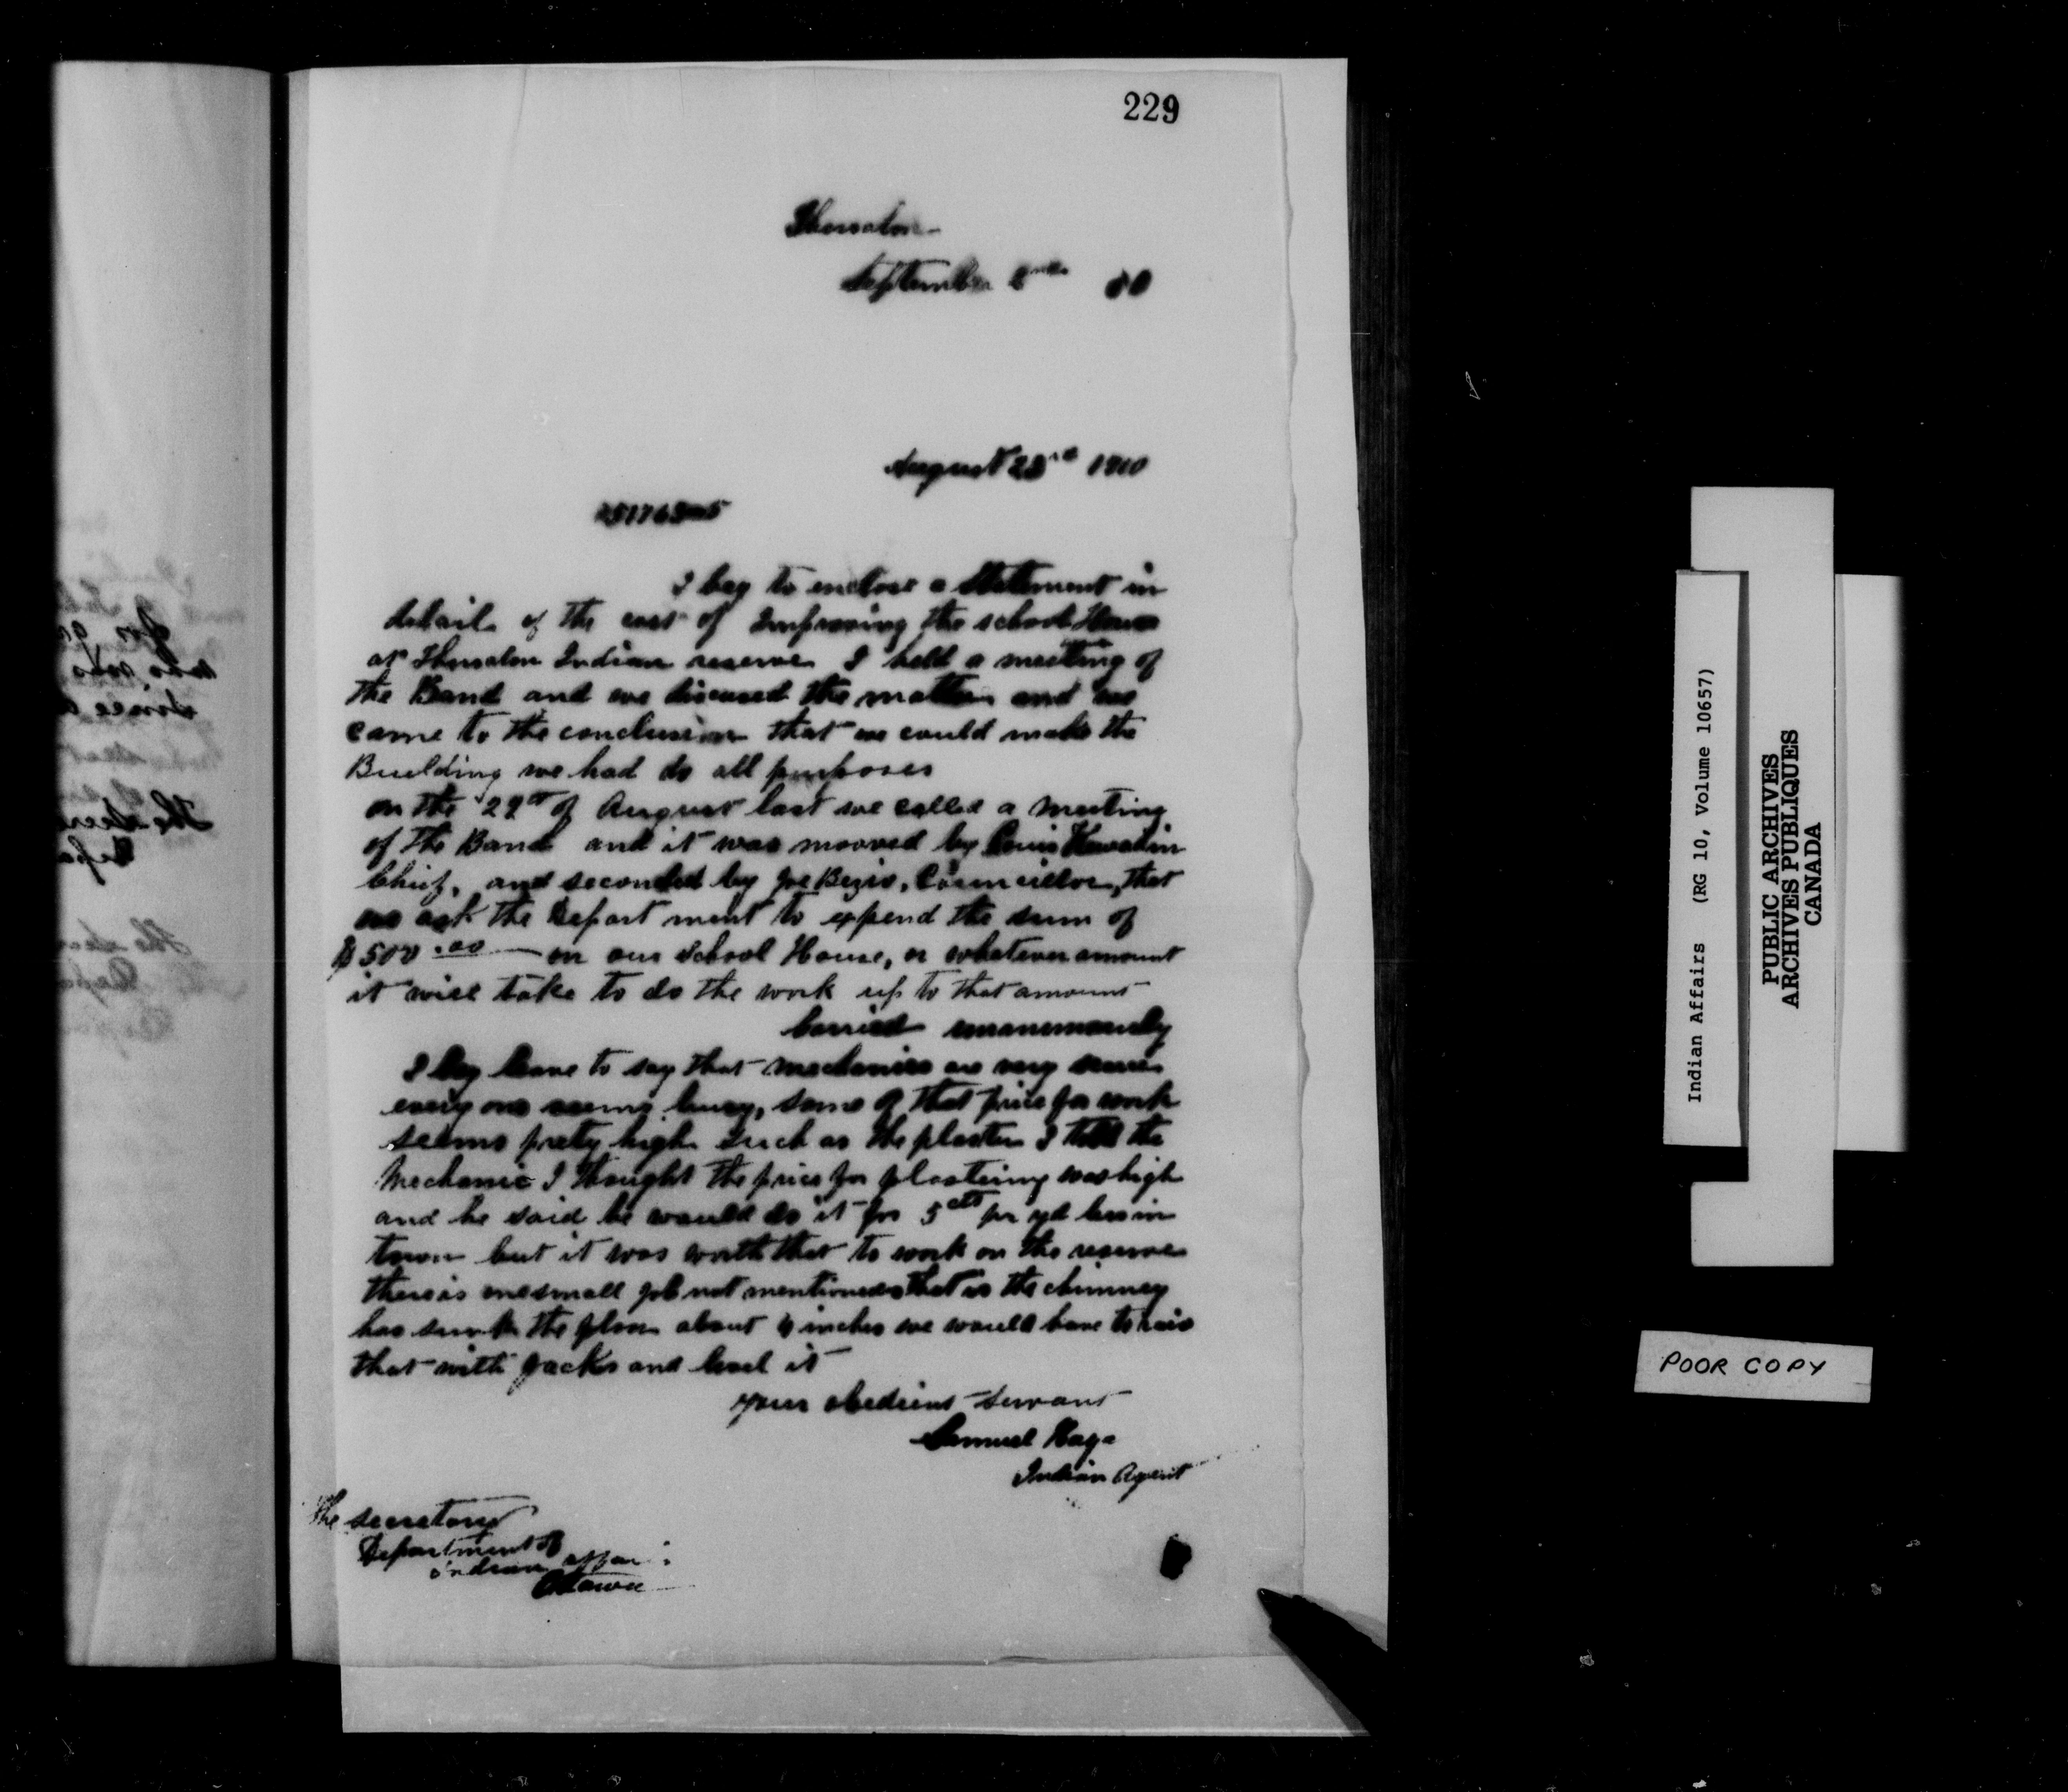 229
Thessalon
September 2nd 10
August 23rd 1910
I beg to enclose a statement in
detail of the cost of Improving the school House
at Thessalon Indian reserve I held a meeting of
the Band and we discused the matter and we
came to the conclusion that we could make the
Building we had do all purposes
on the 22nd of August last we called a meeting
of the Band and it was mooved by Louis
Chief, and seconded by Joe Councillor, that
we ask the Department to expend the sum of
$500.00 on our school House, or whatever amount
it will take to do the work up to that amount
Carried unanimously
I beg leave to say that mechanics are very scarce
every one seems busy, some of that price for work
seems prety high such as the plaster I told the
Mechanic I thought the price for plastering was high
and he said he would do it for 5 cts per yd less in
town but it was worth that to work on the reserve
there is one small job not mentioned that is the chimney
has sunk the floor about 4 inches we would have to rais
that with jacks and level it
your obedient servant
Samuel Hagan
Indian Agent
The secretary
Department of
indian affairs
Ottawa
Indian Affairs (RG 10, Volume 10657)
PUBLIC ARCHIVES
ARCHIVES PUBLIQUES
CANADA
POOR COPY